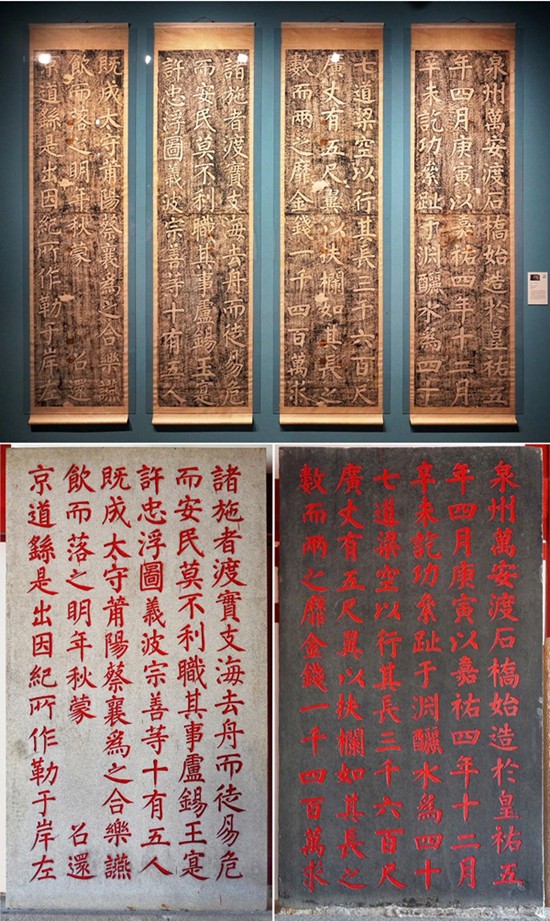 泉州萬安渡石橋始造於皇祐五
年四月庚寅以嘉祐四年十二月
辛未訖功絫趾于渊釃水爲四十
七道梁空以行其長三千六百尺
廣丈有五尺翼以扶欄如其長之
數而兩之靡金錢一千四百萬求
諸施者渡實支海去舟而徒易危
而安民莫不利職其事盧錫王寔
許忠浮圖義波宗善等十有五人
既成太守莆陽蔡襄爲之合樂讌
飲而落之明年秋蒙 召還
京道繇是出因紀所作勒于岸左
泉州萬安渡石橋始造於皇祐五
年四月庚寅以嘉祐四年十二月
辛未訖功絫趾于渊釃水爲四十
七道梁空以行其長三千六百尺
廣丈有五尺翼以扶欄如其長之
數而兩之靡金錢一千四百萬求
諸施者渡實支海去舟而徒易危
而安民莫不利職其事盧錫王寔
許忠浮圖義波宗善等十有五人
既成太守莆陽蔡襄爲之合樂讌
飲而落之明年秋蒙 召還
京道繇是出因紀所作勒于岸左